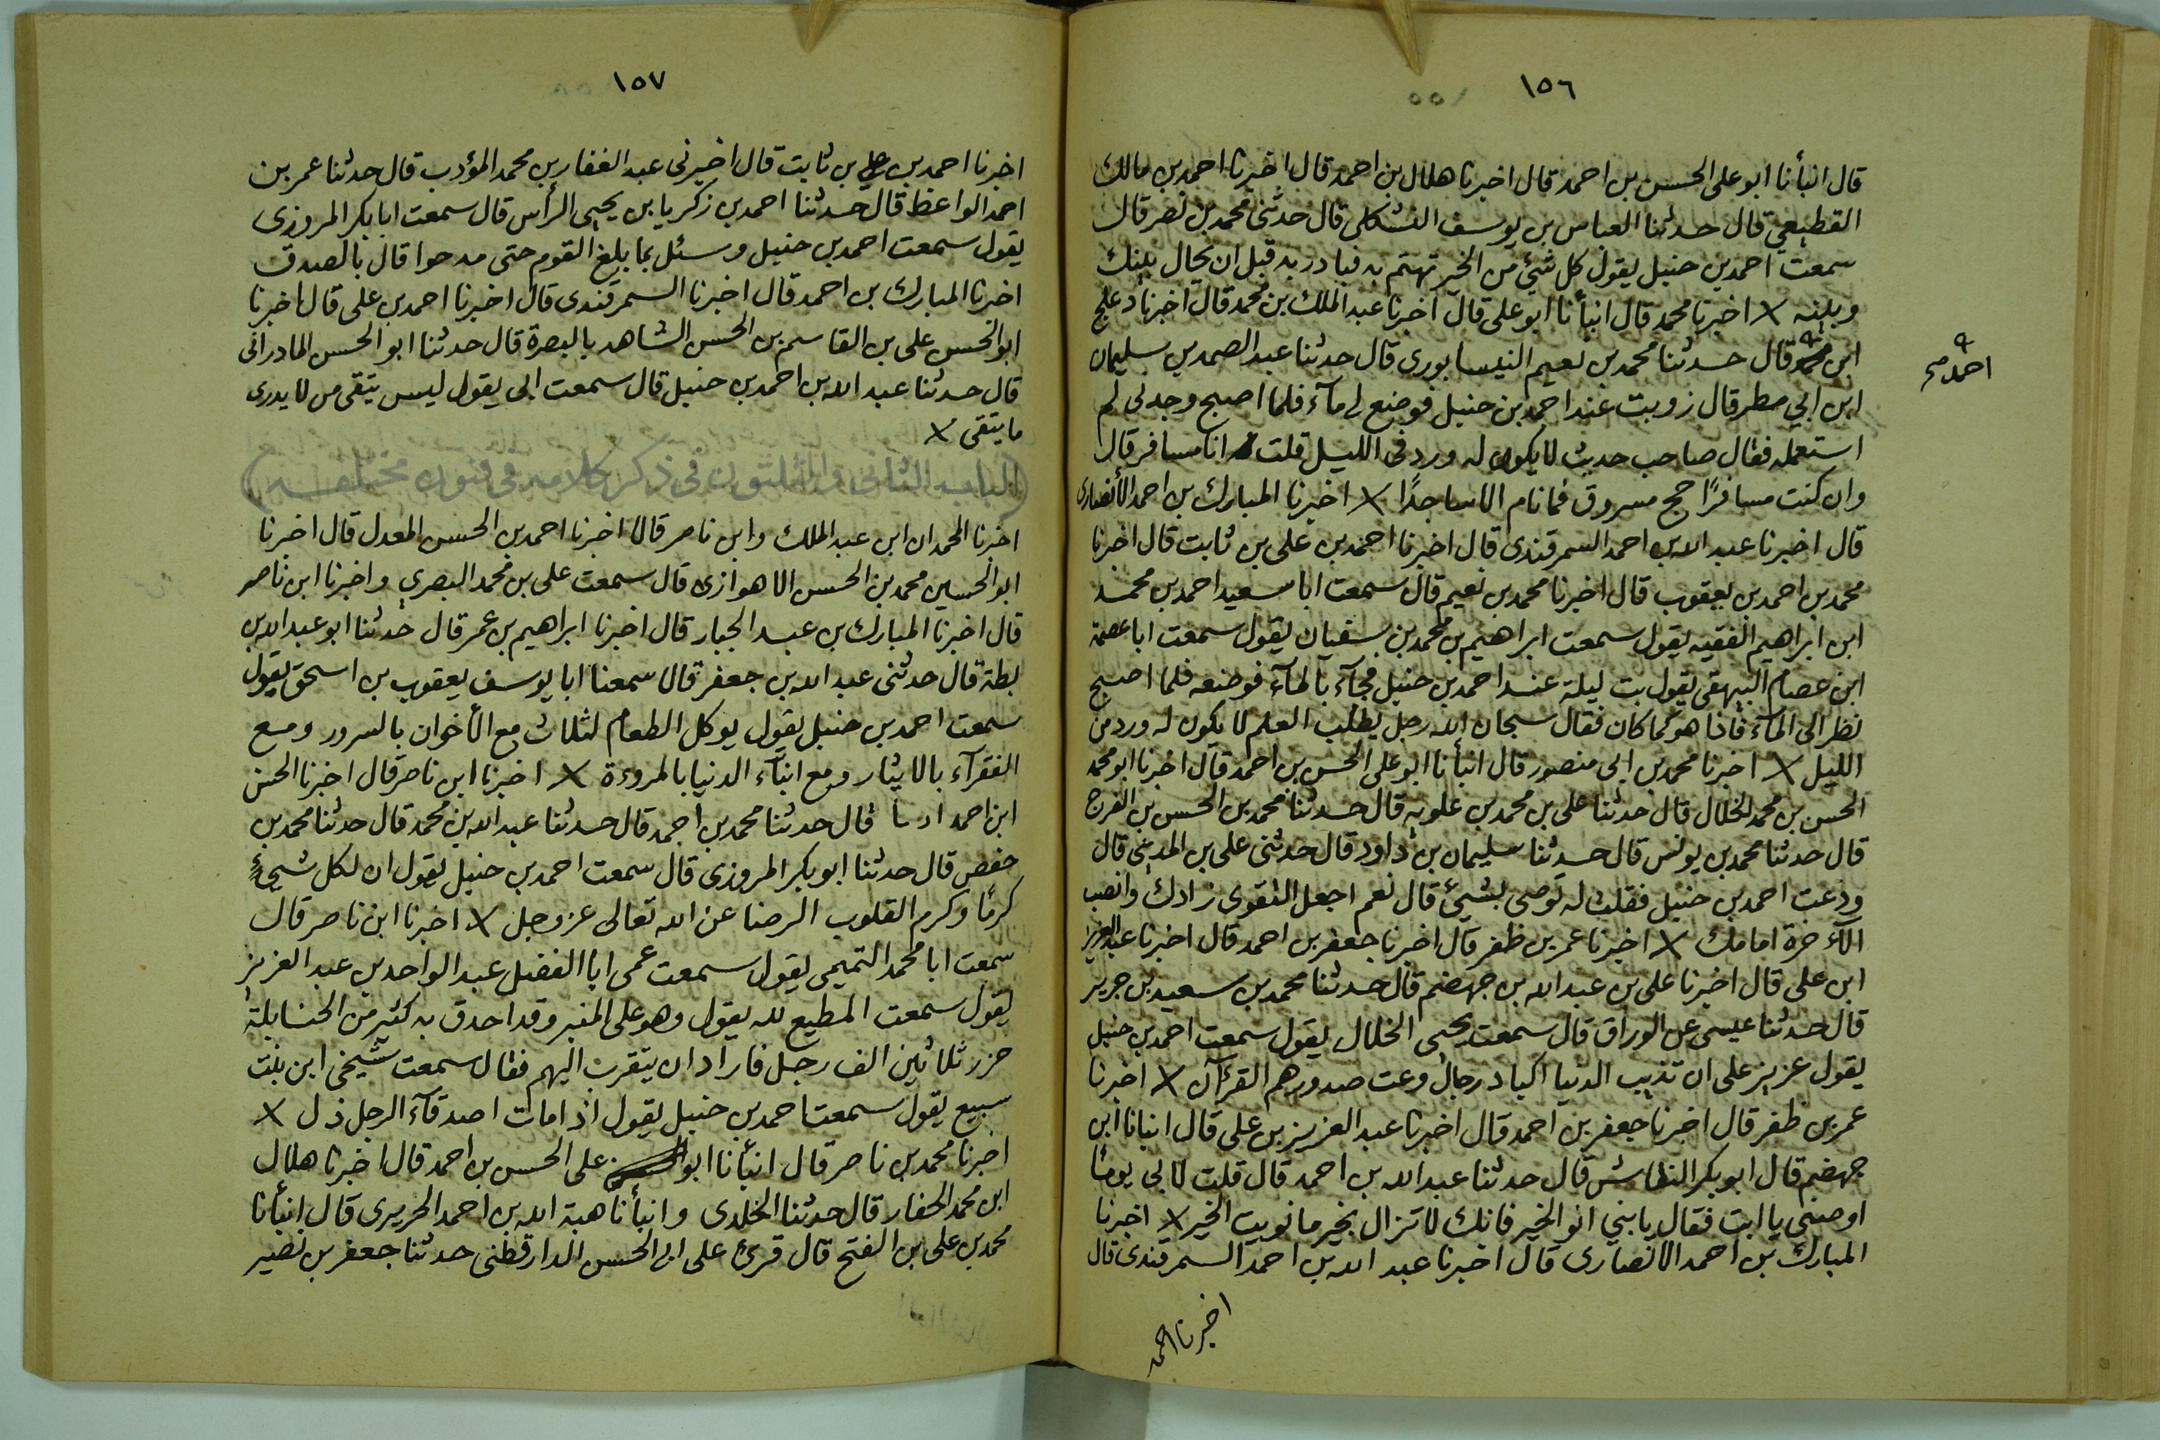 ١٥٦
قال انبأنا ابو على الحسن بن احمد قال اخبرنا هلال بن احمد قال اخبرنا احمد بن مالك
القطيعي قال حدثنا العباس بن يوسف الشكلى قال حدثنى محمد بن نصر قال
سمعت احمد بن حنبل يقول كل شئ من الخير تهتم به فبادر به قبل ان يحال بينك
وبينه × اخبرنا محمد قال انبأنا ابو على قال اخبرنا عبد الملك بن محمد قال اخبرنا دعلج
ابن قال حدثنا محمد بن نعيم النيسابورى قال حدثنا عبد الصمد بن سليمان
احمد صح
ابن ابي مطر قال زوبت عند احمد بن حنبل فوضع لى مآء فلما اصبح وجدلى لم
استعمله فقال صاحب حديث لا يكون له ورد فى الليل قلت انا مسافر قال
وان كنت مسافرًا حج مسروق فما نام الا ساجدًا × اخبرنا المبارك بن احمد الأنصارى
قال اخبرنا عبد الله بن احمد السمرقندى قال اخبرنا احمد بن على بن ثابت قال اخبرنا
محمد بن احمد بن يعقوب قال اخبرنا محمد بن نعيم قال سمعت ابا سعيد احمد بن محمد
ابن ابراهيم الفقيه يقول سمعت ابراهيم بن محمد بن سفيان يقول سمعت ابا عصمة
ابن عصام البيهقى يقول بت ليلة عند احمد بن حنبل فجآء بالمآء فوضعه فلما اصبح
نظر الى المآء فاذا هو كما كان فقال سبحان الله رجل يطلب العلم لا يكون له ورد من
الليل × اخبرنا محمد بن ابى منصور قال انبأنا ابو على الحسن بن احمد قال اخبرنا ابو محمد
الحسن بن محمد الخلال قال حدثنا على بن محمد بن علويه قال حدثنا محمد بن الحسن بن الفرج
قال حدثنا محمد بن يونس قال حدثنا سليمان بن داود قال حدثنى على بن المدينى قال
ودعت احمد بن حنبل فقلت له توصى بشيئ قال نعم اجعل التقوى زادك وانصب
الآخرة امامك × اخبرنا عمر بن ظفر قال اخبرنا جعفر بن احمد قال اخبرنا عبد العزيز
ابن على قال اخبرنا على بن عبد الله بن جهضم قال حدثنا محمد بن سعيد بن جرير
قال حدثنا عيسى عن الوراق قال سمعت يحيى الخلال يقول سمعت احمد بن حنبل
يقول عزيز على ان تذيب الدنيا اكباد رجال وعت صدورهم القرآن × اخبرنا
عمر بن ظفر قال اخبرنا جعفر بن احمد قال اخبرنا عبد العزيز بن على قال انبانا ابن
جهضم قال ابو بكر النقاش قال حدثنا عبد الله بن احمد قال قلت لابى يومًا
اوصنى يا ابت فقال يا بني انو الخير فانك لا تزال بخير ما نويت الخير × اخبرنا
المبارك بن احمد الانصارى قال اخبرنا عبد الله بن احمد السمرقندى قال
اخبرنا احمد
١٥٧
اخبرنا احمد بن على بن ثابت قال اخبرنى عبد الغفار بن محمد المؤدب قال حدثنا عمر بن
احمد الواعظ قال حدثنا احمد بن زكريا بن يحيى الرأس قال سمعت ابا بكر المروزى
يقول سمعت احمد بن حنبل وسئل بما بلغ القوم حتى مدحوا قال بالصدق
اخبرنا المبارك بن احمد قال اخبرنا السمرقندى قال اخبرنا احمد بن على قال اخبرنا
ابو الحسن على بن القاسم بن الحسن الشاهد بالبصرة قال حدثنا ابو الحسن المادرائى
قال حدثنا عبد الله بن احمد بن حنبل قال سمعت ابى يقول ليس يتقى من لا يدرى
ما يتقى ×
(الباب الثانى والثلثون فى ذكر كلامه فى فنون مختلفه)
اخبرنا المحمدان ابن عبد الملك وابن ناصر قالا اخبرنا احمد بن الحسن المعدل قال اخبرنا
ابو الحسين محمد بن الحسن الاهوازى قال سمعت على بن محمد البصري واخبرنا ابن ناصر
قال اخبرنا المبارك بن عبد الجبار قال اخبرنا ابراهيم بن عمر قال حدثنا ابو عبد الله بن
بطة قال حدثنى عبد الله بن جعفر قالا سمعنا ابا يوسف يعقوب بن اسحق يقول
سمعت احمد بن حنبل يقول يوكل الطعام لثلاث مع الأخوان بالسرور ومع
الفقرآء بالايثار ومع ابنآء الدنيا بالمروءة × اخبرنا ابن ناصر قال اخبرنا الحسن
ابن احمد قال حدثنا محمد بن احمد قال حدثنا عبد الله بن محمد قال حدثنا محمد بن
حفص قال حدثنا ابو بكر المروزى قال سمعت احمد بن حنبل يقول ان لكل شيئٍ
كرمًا وكرم القلوب الرضا عن الله تعالى عز وجل × اخبرنا ابن ناصر قال
سمعت ابا محمد التميمى يقول سمعت عمى ابا الفضل عبد الواحد بن عبد العزيز
يقول سمعت المطيع لله يقول وهو على المنبر وقد احدق به كثير من الحنابلة
حزر ثلاثين الف رجل فاراد ان يتقرب اليهم فقال سمعت شيخى ابن بنت
سبيع يقول سمعت احمد بن حنبل يقول اذا مات اصدقآء الرجل ذل ×
اخبرنا محمد بن ناصر قال انبأنا ابو على الحسن بن احمد قال اخبرنا هلال
ابن محمد الحفار قال حدثنا الخلدى وانبأنا هبة الله بن احمد الحريرى قال انبأنا
محمد بن على بن الفتح قال قرئ على ابى الحسن الدارقطنى حدثنا جعفر بن نصير